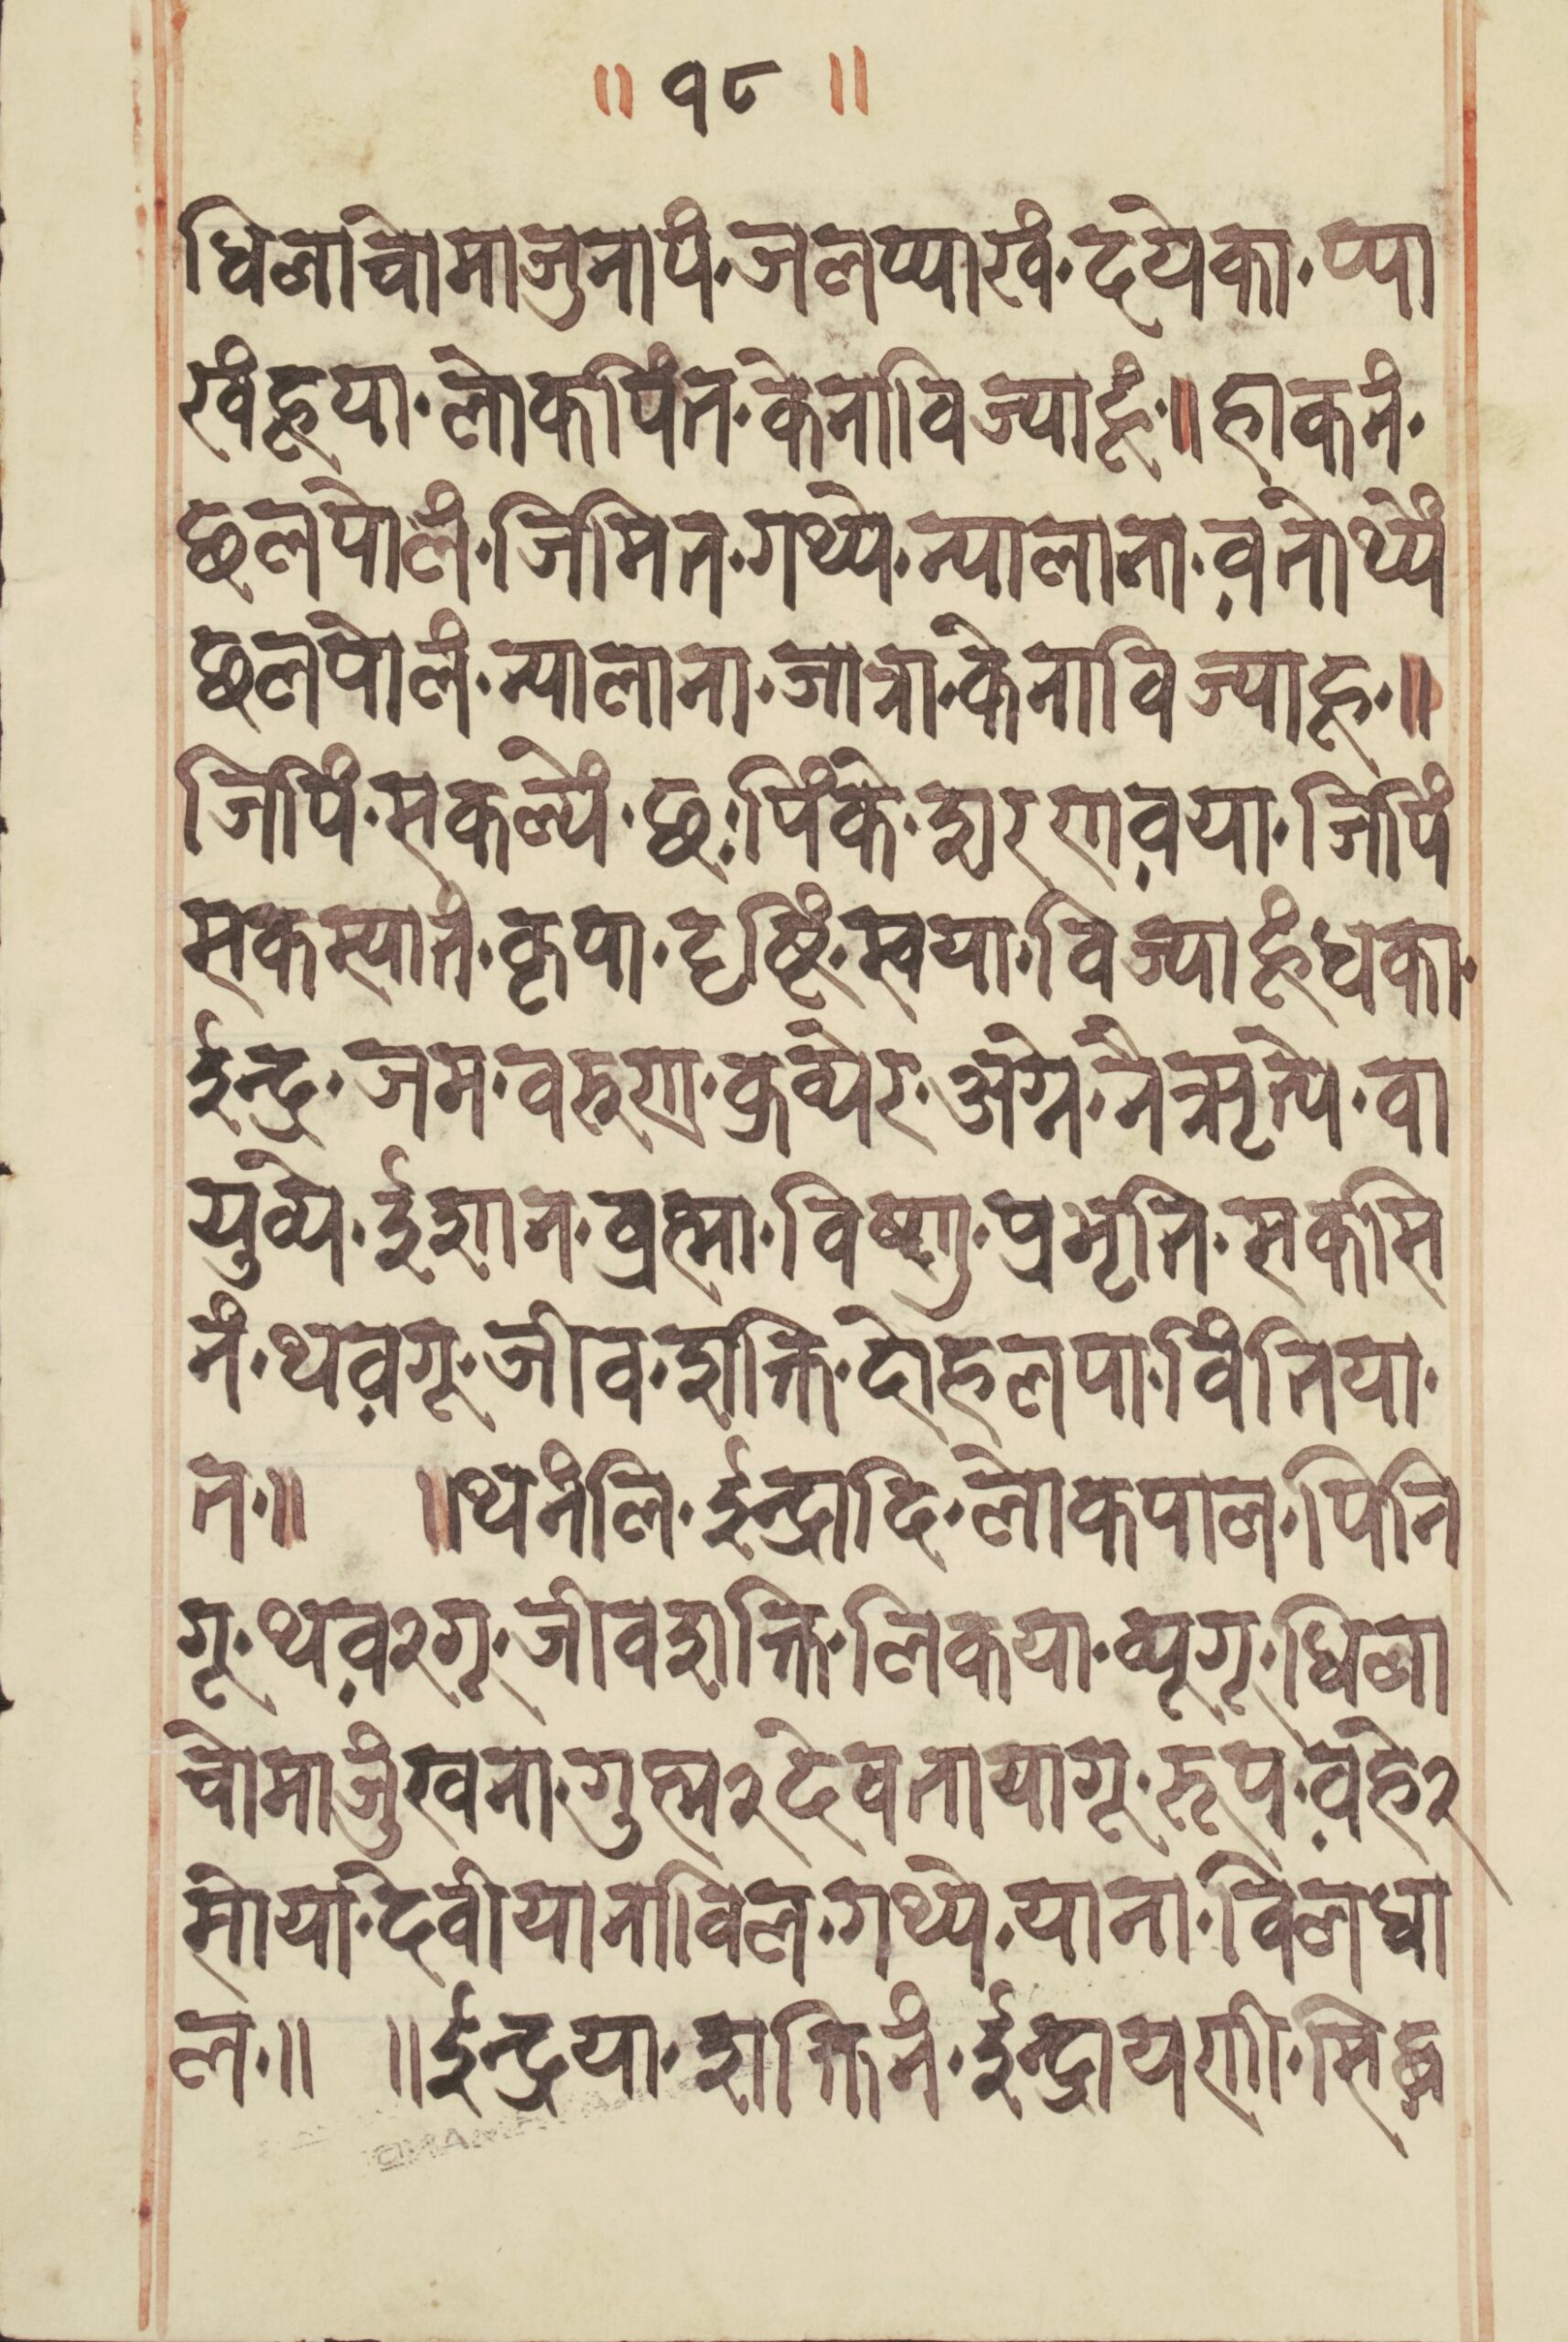 ॥ १८ ॥
धिलाचोमाजुनापं·जलप्याखं·दयेका·प्या
खंहूया·लोकपिंत·केनाविज्याहूं·॥हाकनं·
छलपोलं·जिमित·गथ्ये·न्यालाना·व़तोर्थ्यें
छलपोलं·न्यालाना·जात्रा·केनाविज्याहू·॥
जिपिं·सकल्यें·छ़·पिंके·शरणव़या·जिपिं
सकस्यातं·कृपा·दृष्टिं·स्वया·विज्याहूंधका·
ईन्द्र·जम·वरुण·कुव्येर·अग्ने·नैऋत्ये·वा
युव्ये·ईशान·ब्रह्मा·विष्णु·प्रभृति·सकसि
नं·थव़गू·जीव·शक्ति·दोहलपा·विंतिया·
त·॥ ॥थनंलि·ईन्द्रादि·लोकपाल·पिनि
गू·थव़२गू·जीवशक्ति·लिकया·व्यूगू·धिला
चोमाजुंखना·गुह्म२देवतायागू·रूप·व़हे२
मोया·देवीयानाविल·गथ्ये·याना·विलधा
ल·॥ ॥ईन्द्रया·शक्तिनं·ईन्द्रायणी·सिद्ध